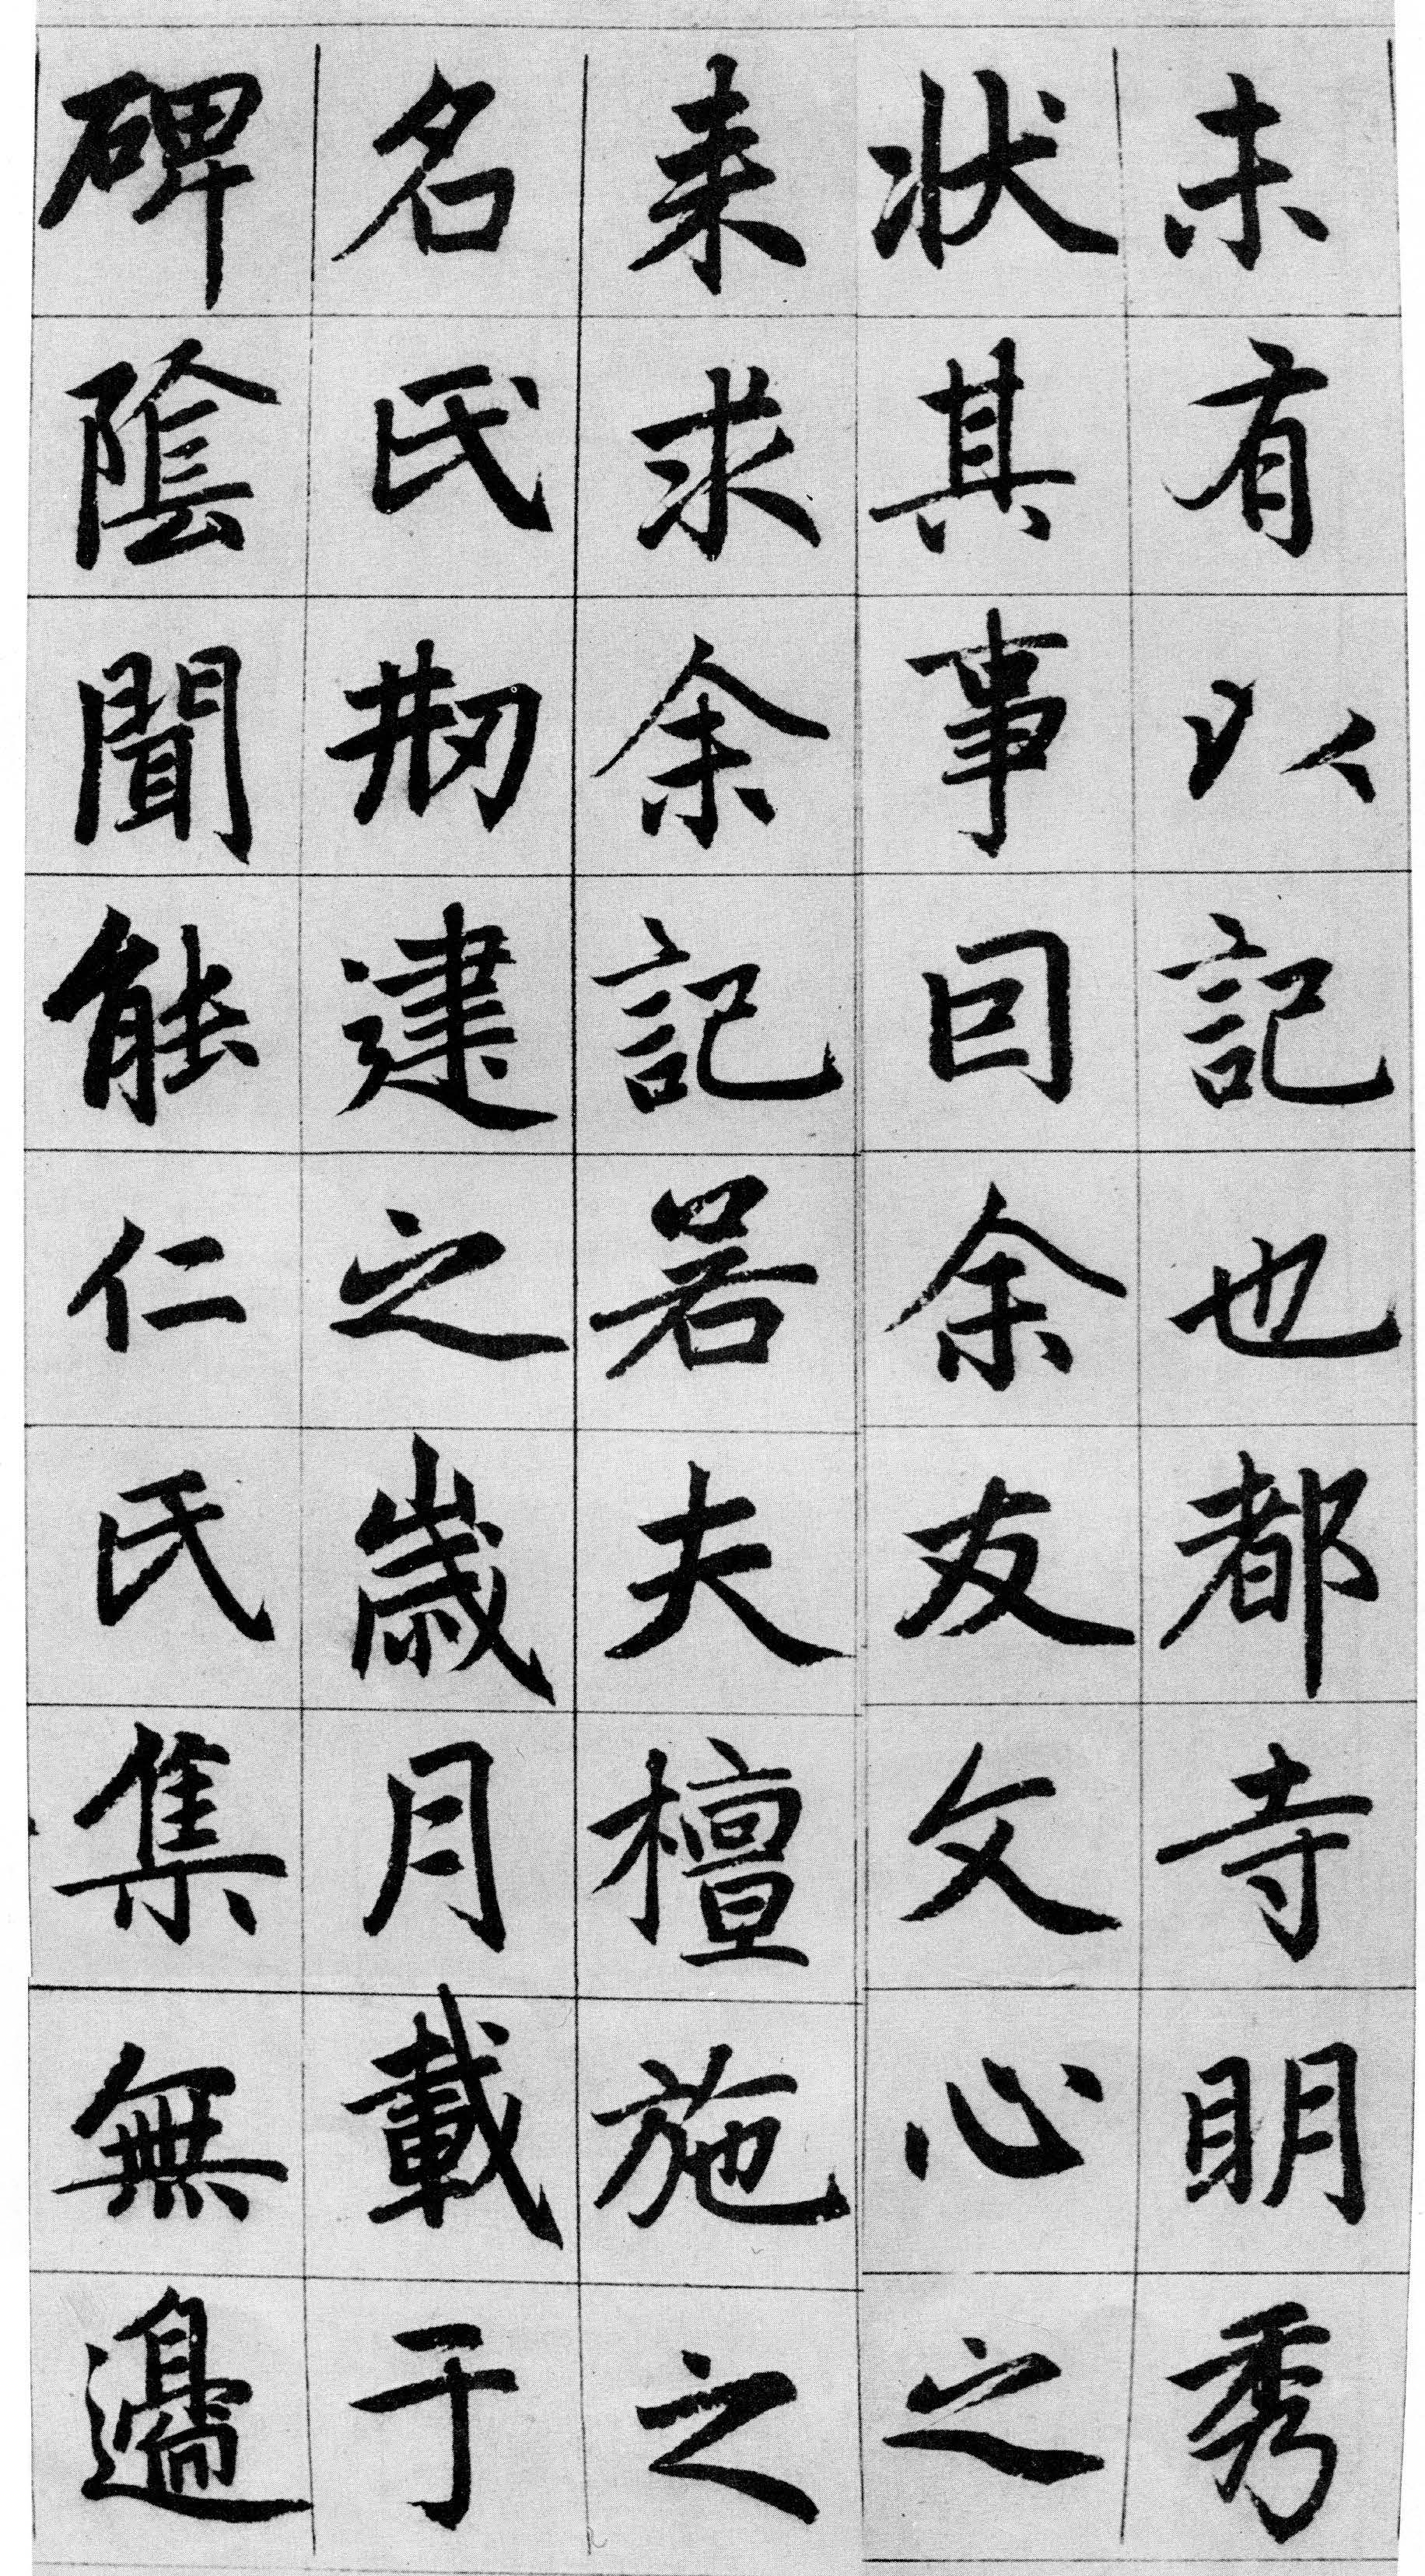 未有以記也都寺明秀
狀其事因余友文心之
来求余記若夫檀施之
名氏刱建之歲月載于
碑陰聞能仁氏集無邊